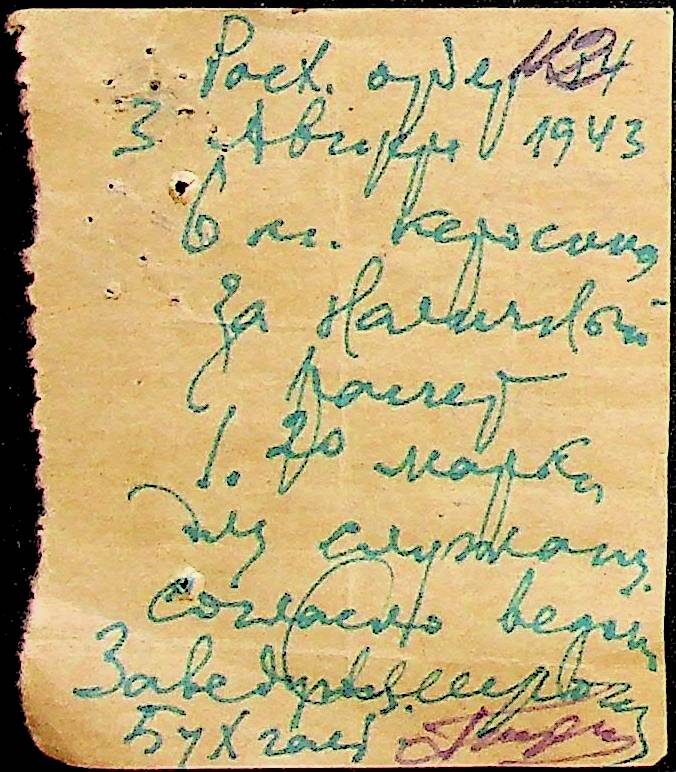 Расх. ордер
3 Августа 1943
6 кг. керосина
За наличной
расчет
1. 20 марки
для служащ.
согласно ведом
Заведующ.
Бухгалт.